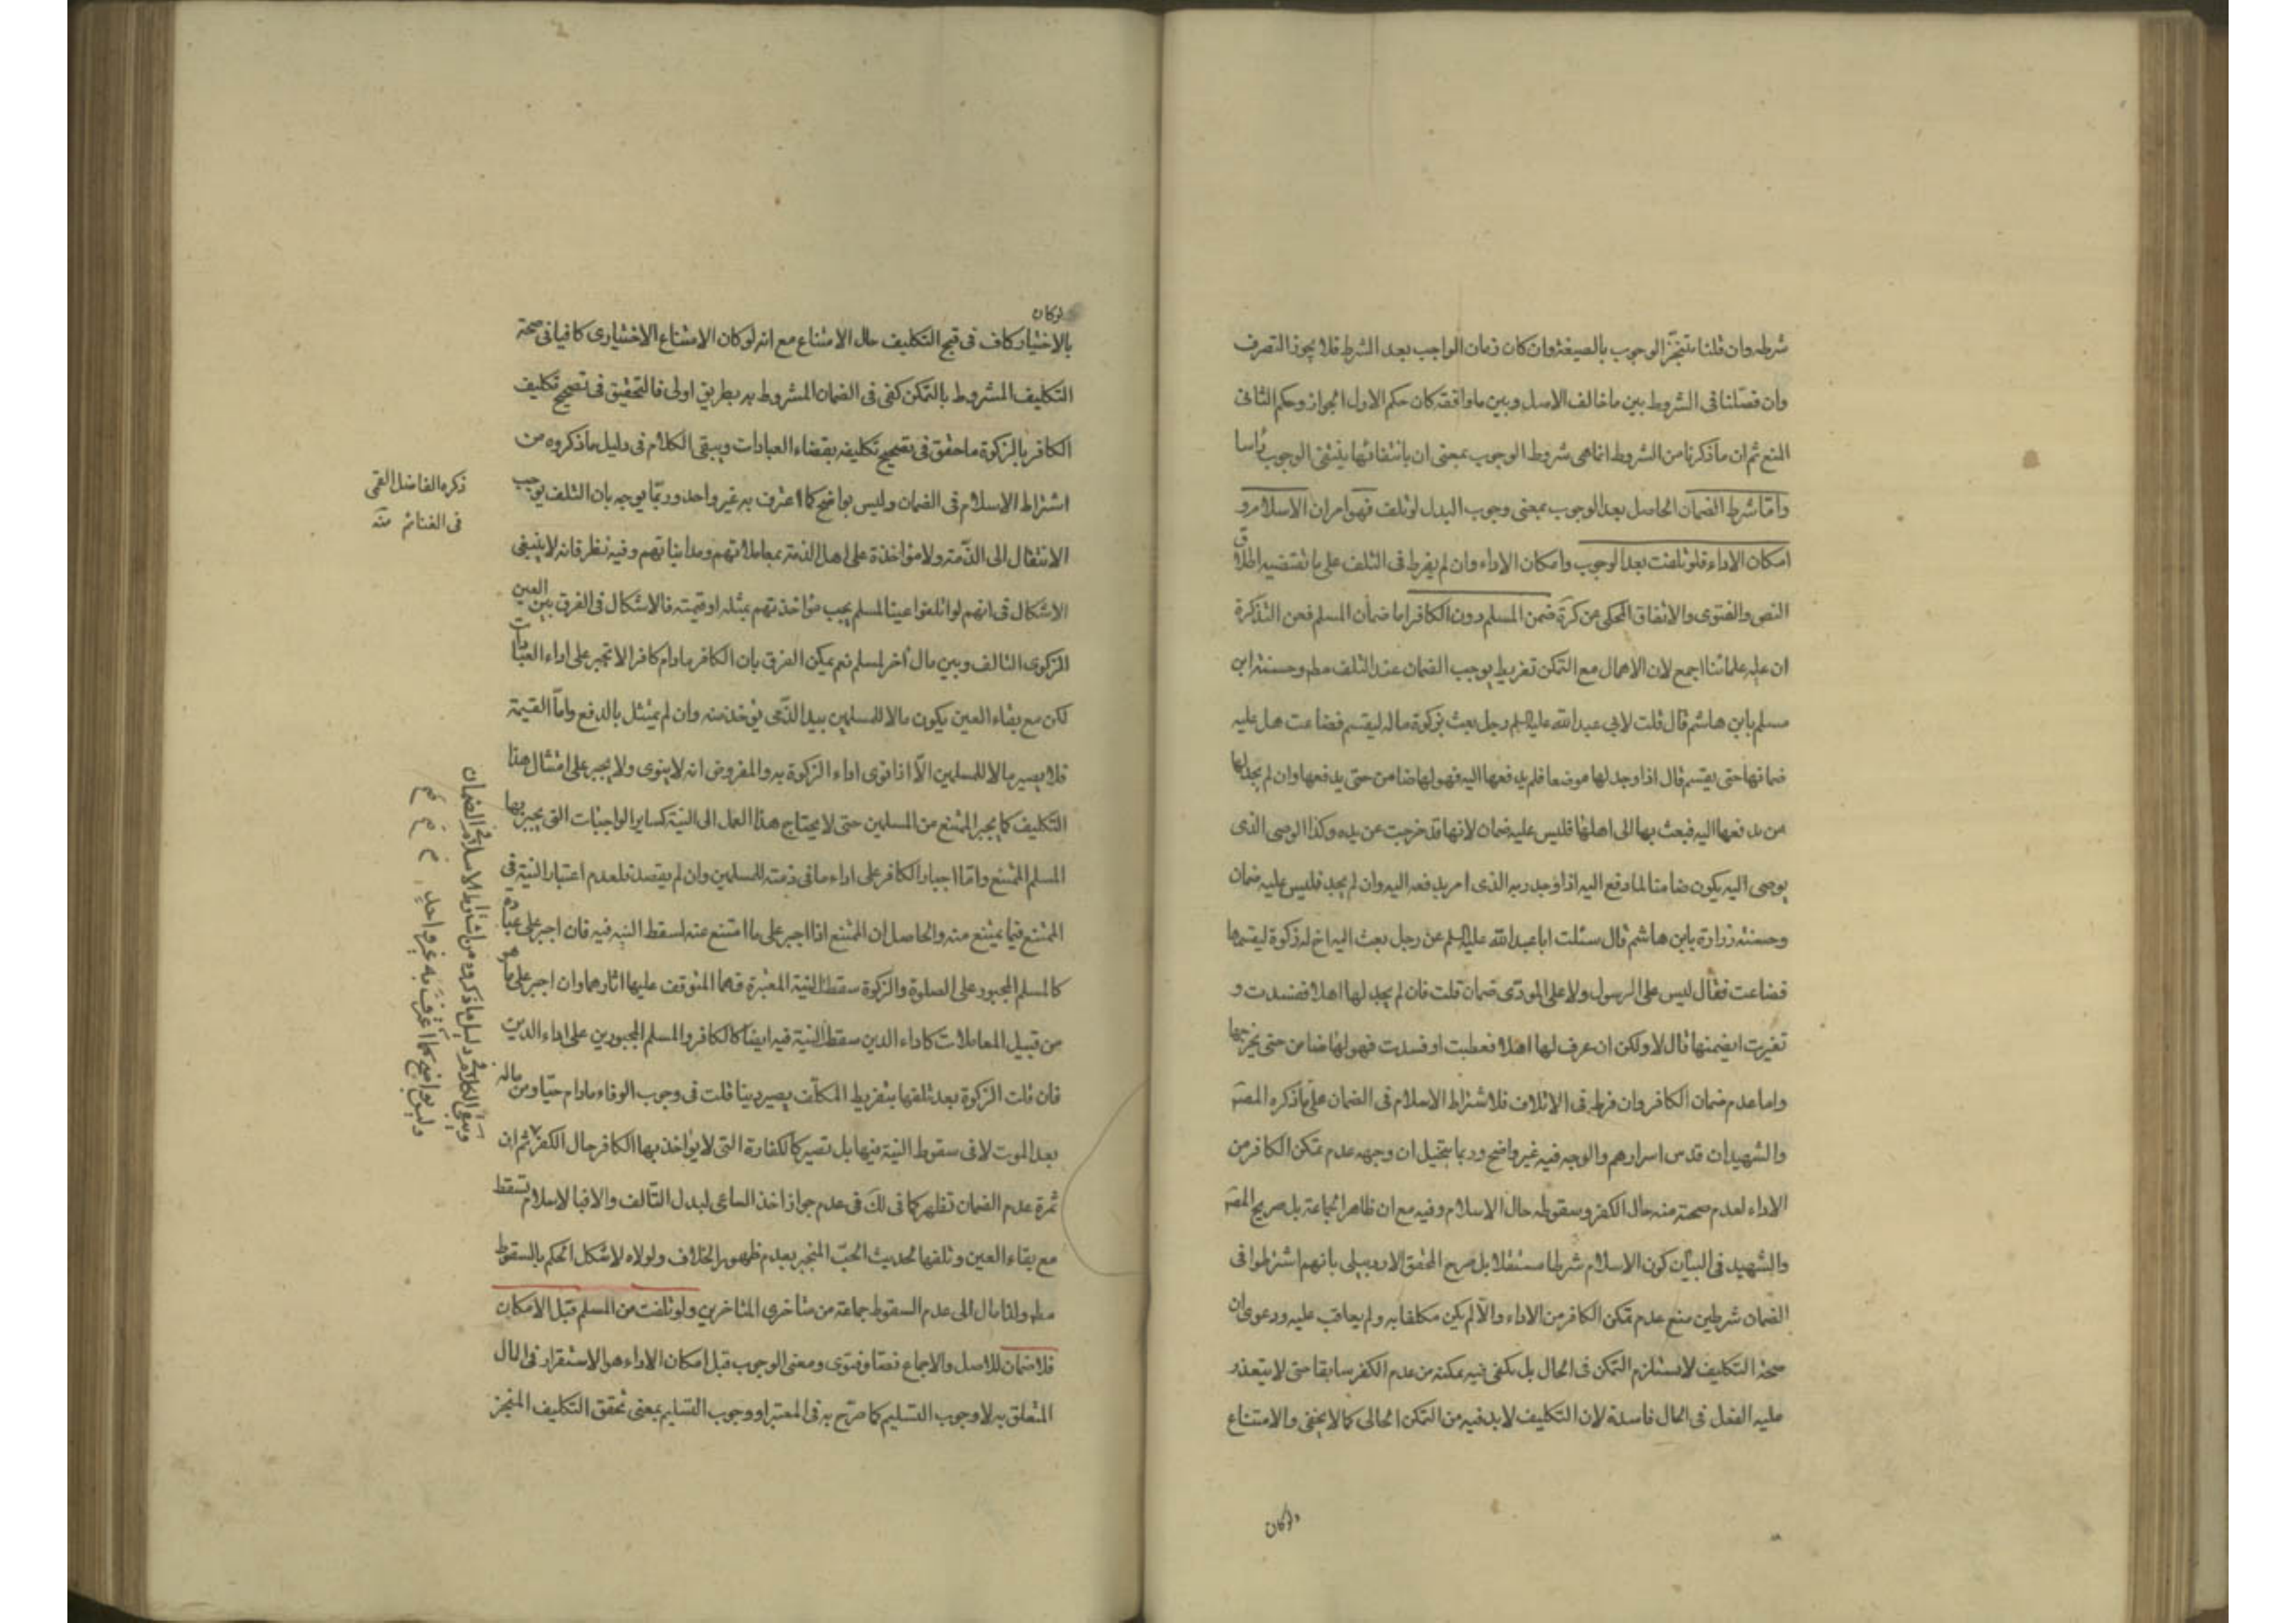 شرطه وان قلنا بتنجّز الوجوب بالصيغة وان كان زمان الواجب بعد الشرط فلا يجوز التصرف
وان فصّلنا فى الشروط بين ما خالف الاصل وبين ما وافقه كان حكم الاول الجواز وحكم الثانى
المنع ثم ان ما ذكرنا من الشروط انما هى شروط الوجوب بمعنى ان بانتفائها ينتفى الوجوب راسا
وامّا شرط الضمان الحاصل بعد الوجوب بمعنى وجوب البدل لو تلف فهو امران الاسلام و
امكان الاداء فلو تلفت بعد الوجوب وامكان الاداء وان لم يفرط فى التلف على ما تقتضيه اطلاق
النص والفتوى والاتفاق المحكى عن كرة ضمن المسلم دون الكافر اما ضمان المسلم فعن التذكرة
ان عليه علمائنا اجمع لان الاهمال مع التمكن تفريط يوجب الضمان عند التلف مطم وحسنة ابن
مسلم بابن هاشم قال قلت لابى عبد الله عليه السلم رجل بعث بزكوة ماله ليقسم فضاعت هل عليه
ضمانها حتى يقسم قال اذا وجد لها موضعا فلم يدفعها اليه فهو لها ضامن حتى يدفعها وان لم يجد لها
من يدفعها اليه فبعث بها الى اهلها فليس عليه ضمان لانها قد خرجت عن يده وكذا الوصى الذى
يوصى اليه يكون ضامنا لما دفع اليه اذا وجد ربه الذى امر بدفعه اليه وان لم يجد فليس عليه ضمان
وحسنة زرارة بابن هاشم قال سئلت ابا عبد الله عليه السلم عن رجل بعث اليه اخ له زكوة ليقسمها
فضاعت فقال ليس على الرسول ولا على المودّى ضمان قلت فان لم يجد لها اهلا ففسدت و
تغيرت ايضمنها قال لا ولكن ان عرف لها اهلا فعطبت او فسدت فهو لها ضامن حتى يخرجها
واما عدم ضمان الكافر وان فرط فى الاتلاف فلاشتراط الاسلام فى الضمان على ما ذكره المصم
والشهيدان قدس اسرارهم والوجه فيه غير واضح وربما يتخيل ان وجهه عدم تمكن الكافر من
الاداء لعدم صحته منه حال الكفر وسقوطه حال الاسلام وفيه مع ان ظاهر الجماعة بل صريح المصم
والشهيد فى البيان كون الاسلام شرطا مستقلا بل صرح المحقق الاردبيلى بانهم اشترطوا فى
الضمان شرطين منع عدم تمكن الكافر من الاداء والّا لم يكن مكلفا به ولم يعاقب عليه ودعوى ان
صحة التكليف لا يستلزم التمكن فى الحال بل يكفى فيه تمكنه من عدم الكفر سابقا حتى لا يتعذر
عليه الفعل فى الحال فاسدة لان التكليف لابد فيه من التمكن الحالى كما لا يخفى والامتناع
ولو كان
لو كان
بالاختيار كاف فى قبح التكليف حال الامتناع مع انه لو كان الامتناع الاختيارى كافيا فى صحة
التكليف المشروط بالتمكن كفى فى الضمان المشروط به بطريق اولى فالتحقيق فى تصحيح تكليف
الكافر بالزكوة ما حقق فى تصحيح تكليفه بقضاء العبادات ويبقى الكلام فى دليل ما ذكروه من
اشتراط الاسلام فى الضمان وليس بواضح كما اعترف به غير واحد وربّما يوجه بان التلف يوجب
الانتقال الى الذّمة ولا مؤاخذة على اهل الذمة بمعاملاتهم ومدايناتهم وفيه نظر فانه لا ينبغى
الاشكال فى انهم لو اتلفوا عينا لمسلم يجب مؤاخذتهم بمثله او قيمته فالاشكال فى الفرق بين العين
الزكوى التالف وبين مال آخر لمسلم نعم يمكن الفرق بان الكافر ما دام كافرا لا تجبر على اداء العبادات
لكن مع بقاء العين يكون مالا للمسلمين بيد الذّمى يؤخذ منه وان لم يمتثل بالدفع وامّا القيمة
فلا يصير مالا للمسلمين الّا اذا نوى اداء الزكوة به والمفروض انه لا ينوى ولا يجبر على امتثال هذا
التكليف كما يجبر الممتنع من المسلمين حتى لا يحتاج هذا العمل الى النية كساير الواجبات التى يجبر بها
المسلم الممتنع وامّا اجبار الكافر على اداء ما فى ذمته للمسلمين وان لم يقصد فلعدم اعتبار النية فى
الممتنع فيما يمتنع منه والحاصل ان الممتنع اذا اجبر على ما امتنع منه لسقط النيه فيه فان اجبر على عبادة
كالمسلم المجبور على الصلوة والزكوة سقط النية المعتبرة فهما المتوقف عليها اثارهما وان اجبر على ما هو
من قبيل المعاملات كاداء الدين سقط النية فيه ايضا كالكافر والمسلم المجبورين على اداء الدين
فان قلت الزكوة بعد تلفها بتفريط المكلّف يصير دينا قلت فى وجوب الوفاء مادام حيّا ومن ماله
بعد الموت لا فى سقوط النية فيها بل تصير كالكفارة التى لا يؤاخذ بها الكافر حال الكفر ثم ان
ثمرة عدم الضمان تظهر كما فى لك فى عدم جواز اخذ الساعى لبدل التالف والا فبالاسلام تسقط
مع بقاء العين وتلفها لحديث الجبّ المنجبر بعدم ظهور الخلاف ولولاه لاشكل الحكم بالسقوط
مطم ولذا مال الى عدم السقوط جماعة من متاخرى المتاخرين ولو تلفت من المسلم قبل الامكان
فلا ضمان للاصل والاجماع نصّا وفتوى ومعنى الوجوب قبل امكان الاداء هو الاستقرار فى المال
المتعلق به لا وجوب التسليم كما صرّح به فى المعتبر او وجوب التسليم بمعنى تحقق التكليف المنجز
ذكره الفاضل القمى
فى الغنائم منه
ويبقى الكلام فى دليل ما ذكروه من اشتراط الاسلام فى الضمان
وليس بواضح كما اعترف به غير واحد